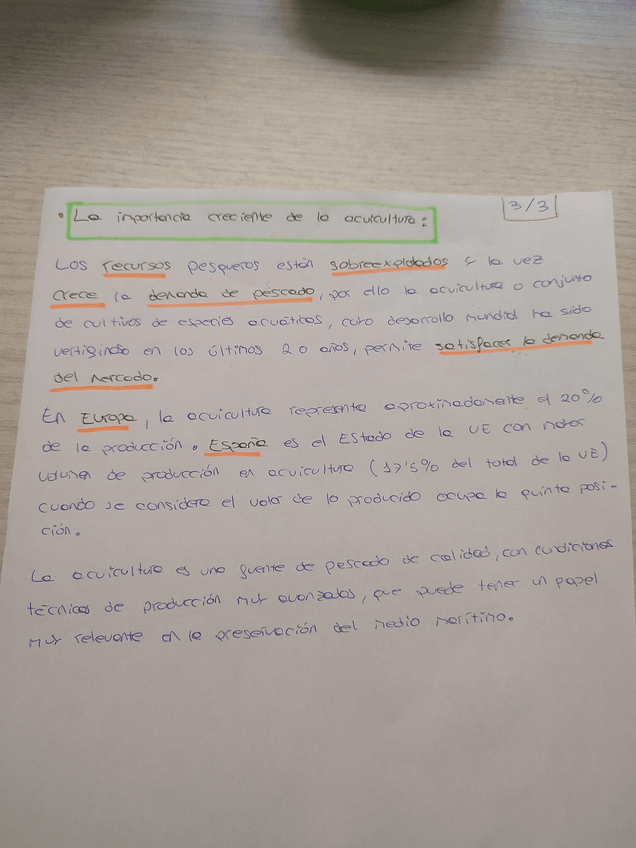 · La importancia creciente de la acuicultura:
3/3
Los recursos pesqueros están sobreexplotados y la vez
crece la demanda de pescado, por ello la acuicultura o conjunto
de cultivos de especies acuáticas, cuyo desarrollo mundial ha sido
vertiginoso en los últimos 20 años, permite satisfacer la demanda
del mercado.
En Europa, la acuicultura representa aproximadamente el 20%
de la producción. España es el Estado de la UE con mayor
volumen de producción en acuicultura (17'5% del total de la UE)
cuando se considera el valor de lo producido ocupa la quinta posi-
ción.
La acuicultura es una fuente de pescado de calidad, con condiciones
técnicas de producción muy avanzadas, que puede tener un papel
muy relevante en la preservación del medio marítimo.